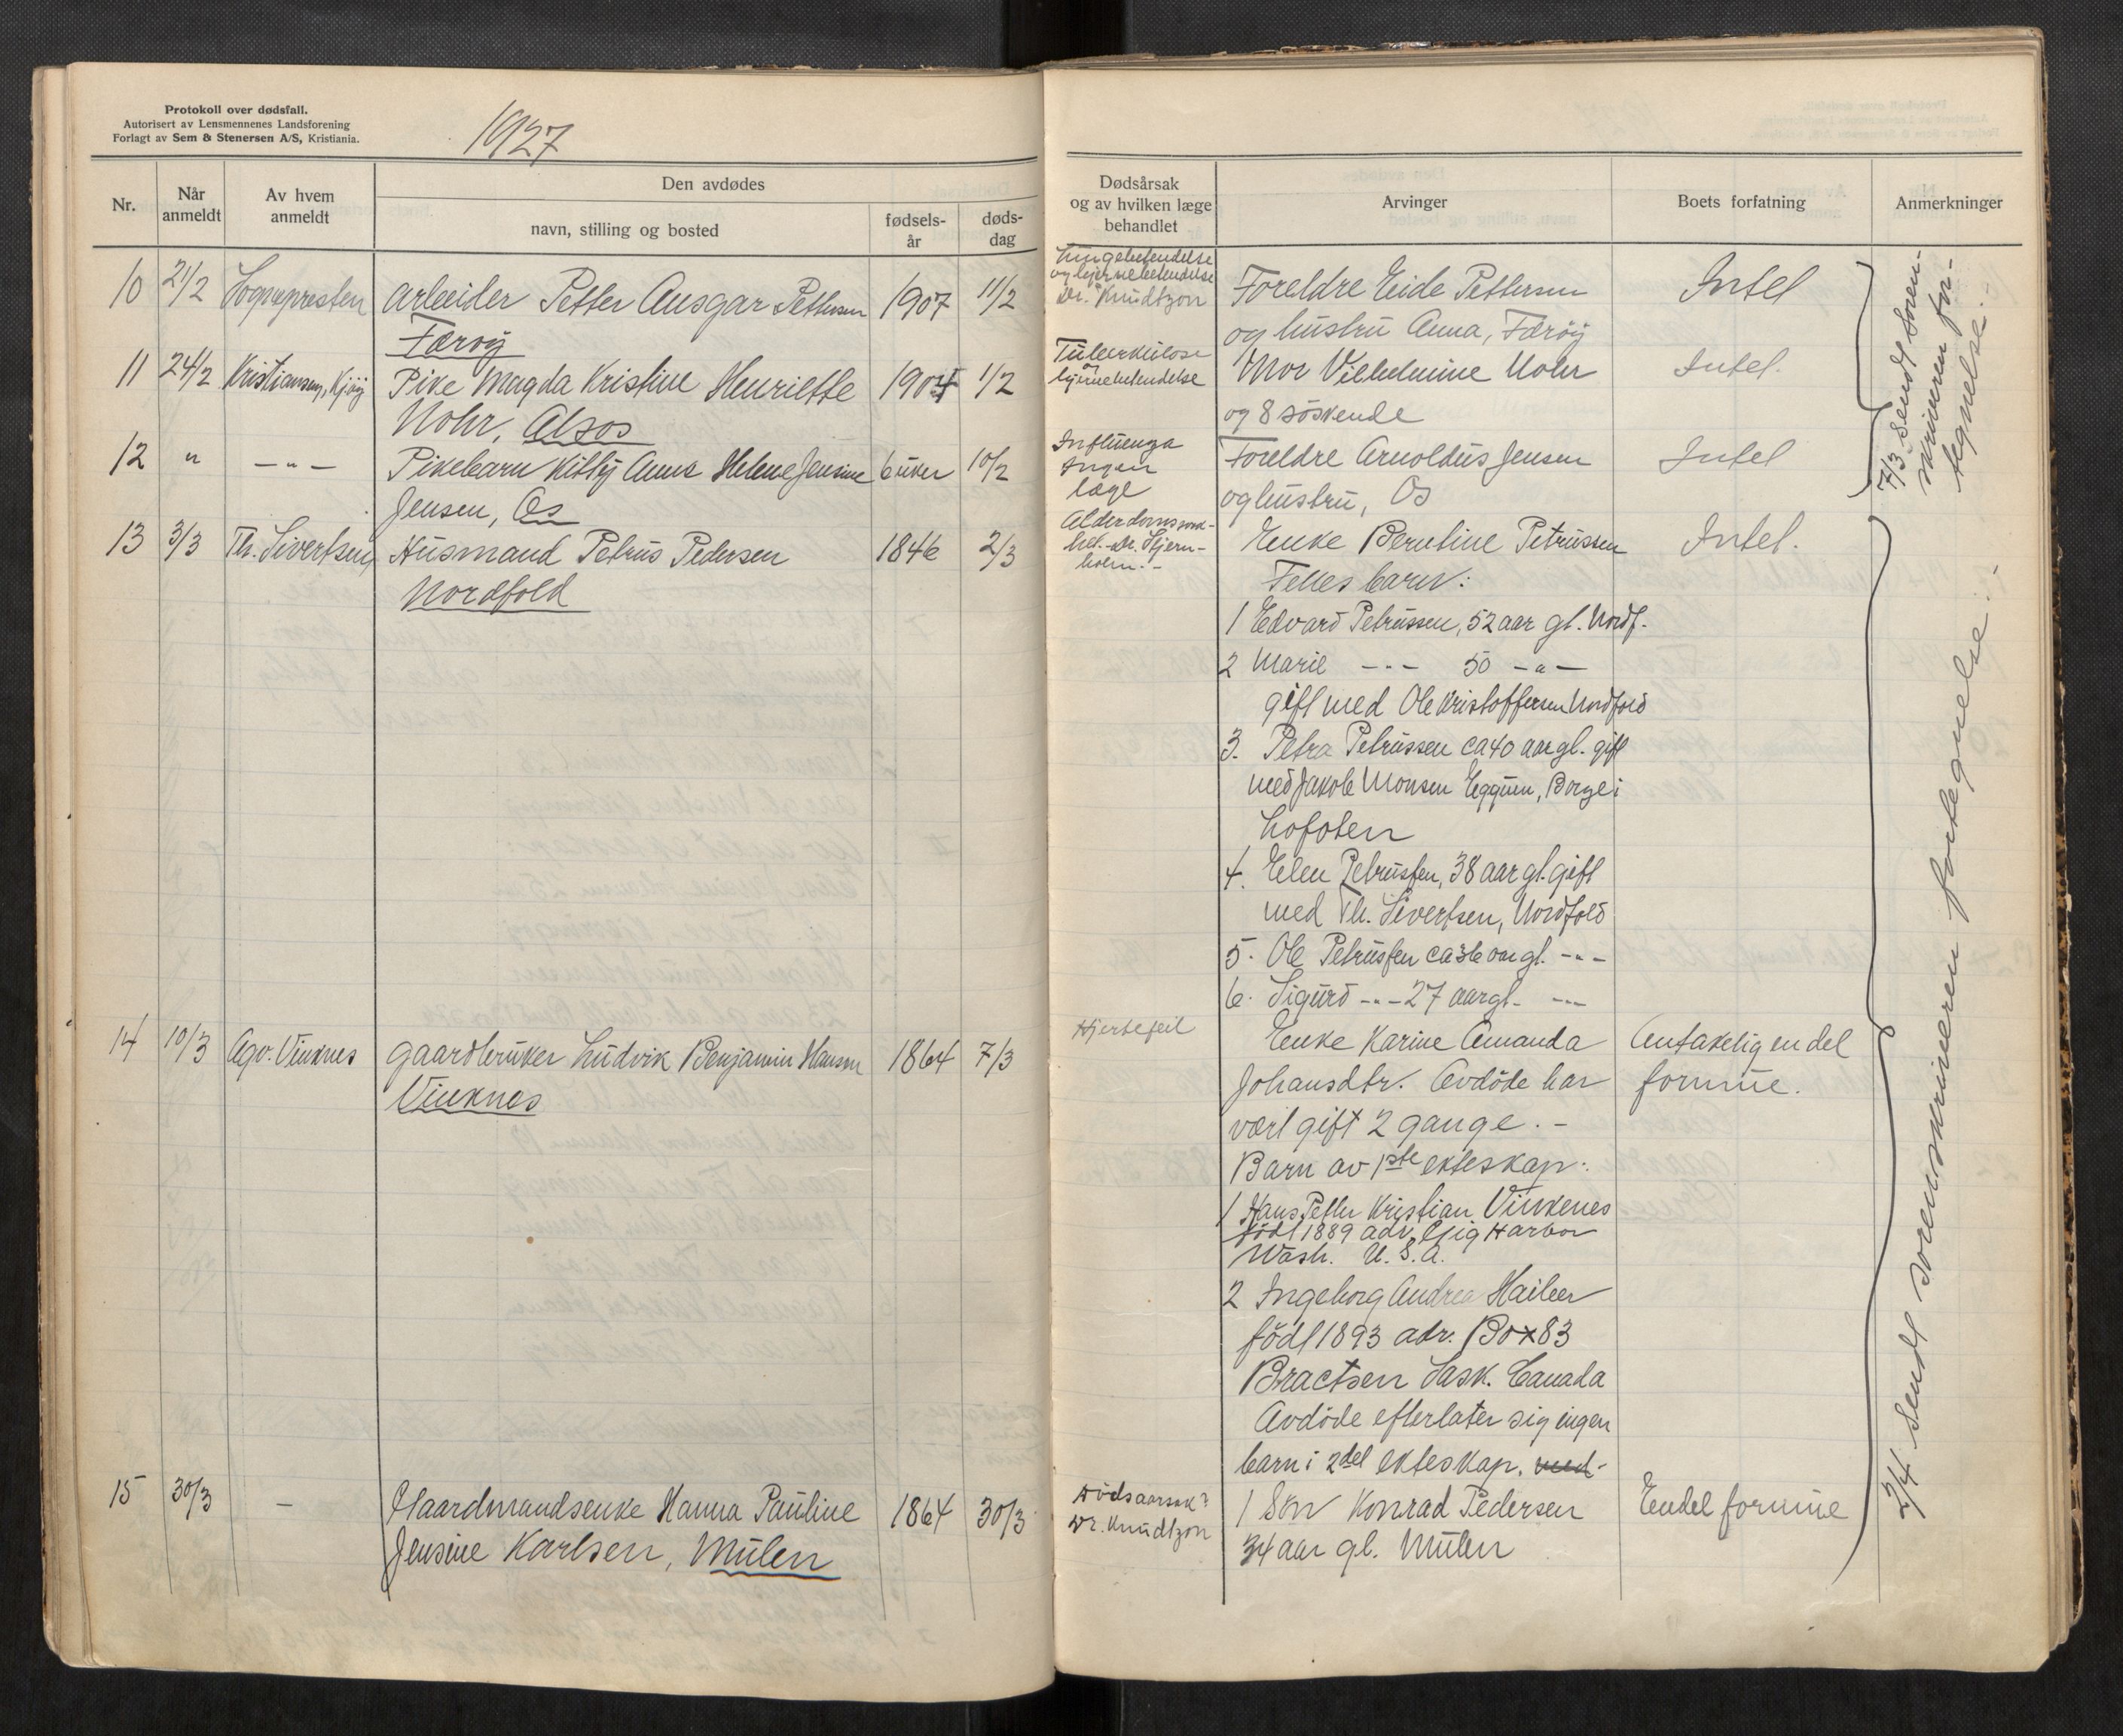 Protokoll over dødsfall.
Autorisert av Lensmennenes Landsforening
Forlagt av Sem & Stenersen A/S, Kristiania.
1927
Nr.
Når anmeldt
Av hvem anmeldt
Den avdødes
navn, stilling og bosted
fødselsår
dødsdag
Dødsårsak
og av hvilken læge
behandlet
Arvinger
Boets forfatning
Anmerkninger
10 21/2 Sognepresten Arbeider Petter Ansgar Pettersen 1907 11/2
Færøy
Lungebetendelse
og hjernebetendelse
Dr. Knudtzon
Foreldre Eide Pettersen
og hustru Anna, Færøy
Intet
11 24/2 Kristiansen, Kjøy Pike Magda Kristine Henriette 1904 1/2
Nohr, Alsos
Tuberkulose
og
hjernebetendelse
Mor Vilhelmine Nohr
og 8 søskende
Intet.
12 " — " — Pikebarn Kitty Anne Helene Jensine 6 uker 10/2
Jensen, Os
Influenza
Ingen
læge
Foreldre Arnoldus Jensen
og hustru, Os
Intet
7/3 Sendt soren-
skriveren for-
tegnelse. -
13 3/3 Th. Sivertsen Husmand Petrus Pedersen 1846 2/3
Nordfold
Alderdomssvak-
het. Dr. Stjern-
holm. -
Enke Berntine Petrussen
Felles barn:
1 Edvard Petrussen, 52 aar gl. Nordf.
2 Marie — " — 50 — " —
gift med Ole Kristoffersen Nordfold
3. Petra Petrussen ca 40 aar gl. gift
med Jakob Monsen Eggum, Borge i
Lofoten
4. Elen Petrussen, 38 aar gl. gift
med Th. Sivertsen, Nordfold
5. Ole Petrussen ca 36 aar gl. — " —
6. Sigurd — " — 27 aar gl. — " —
Intet.
14 10/3 Agv. Vinknes Gaardbruker Ludvik Benjamin Hansen 1864 7/3
Vinknes
Hjertefeil
Enke Karine Amanda
Johansdtr. Avdøde har
vært gift 2 gange. -
Barn av 1ste ekteskap:
1 Hans Petter Kristian Vinkenes
født 1889 adr. Gig Harbor
Wash. U. S. A.
2 Ingeborg Andrea
født 1893 adr. Box 83
Sask. Canada
Avdøde efterlater sig ingen
barn i 2det ekteskap. med
Antakelig en del
formue.
15 30/3 — Gaardmandsenke Hanna Pauline 1864 30/3
Jensine Karlsen, Mulen
Dødsaarsak?
Dr. Knudtzon
1 Søn Konrad Pedersen
34 aar gl. Mulen
Endel formue
2/4 sendt sorenskriveren fortegnelse. -